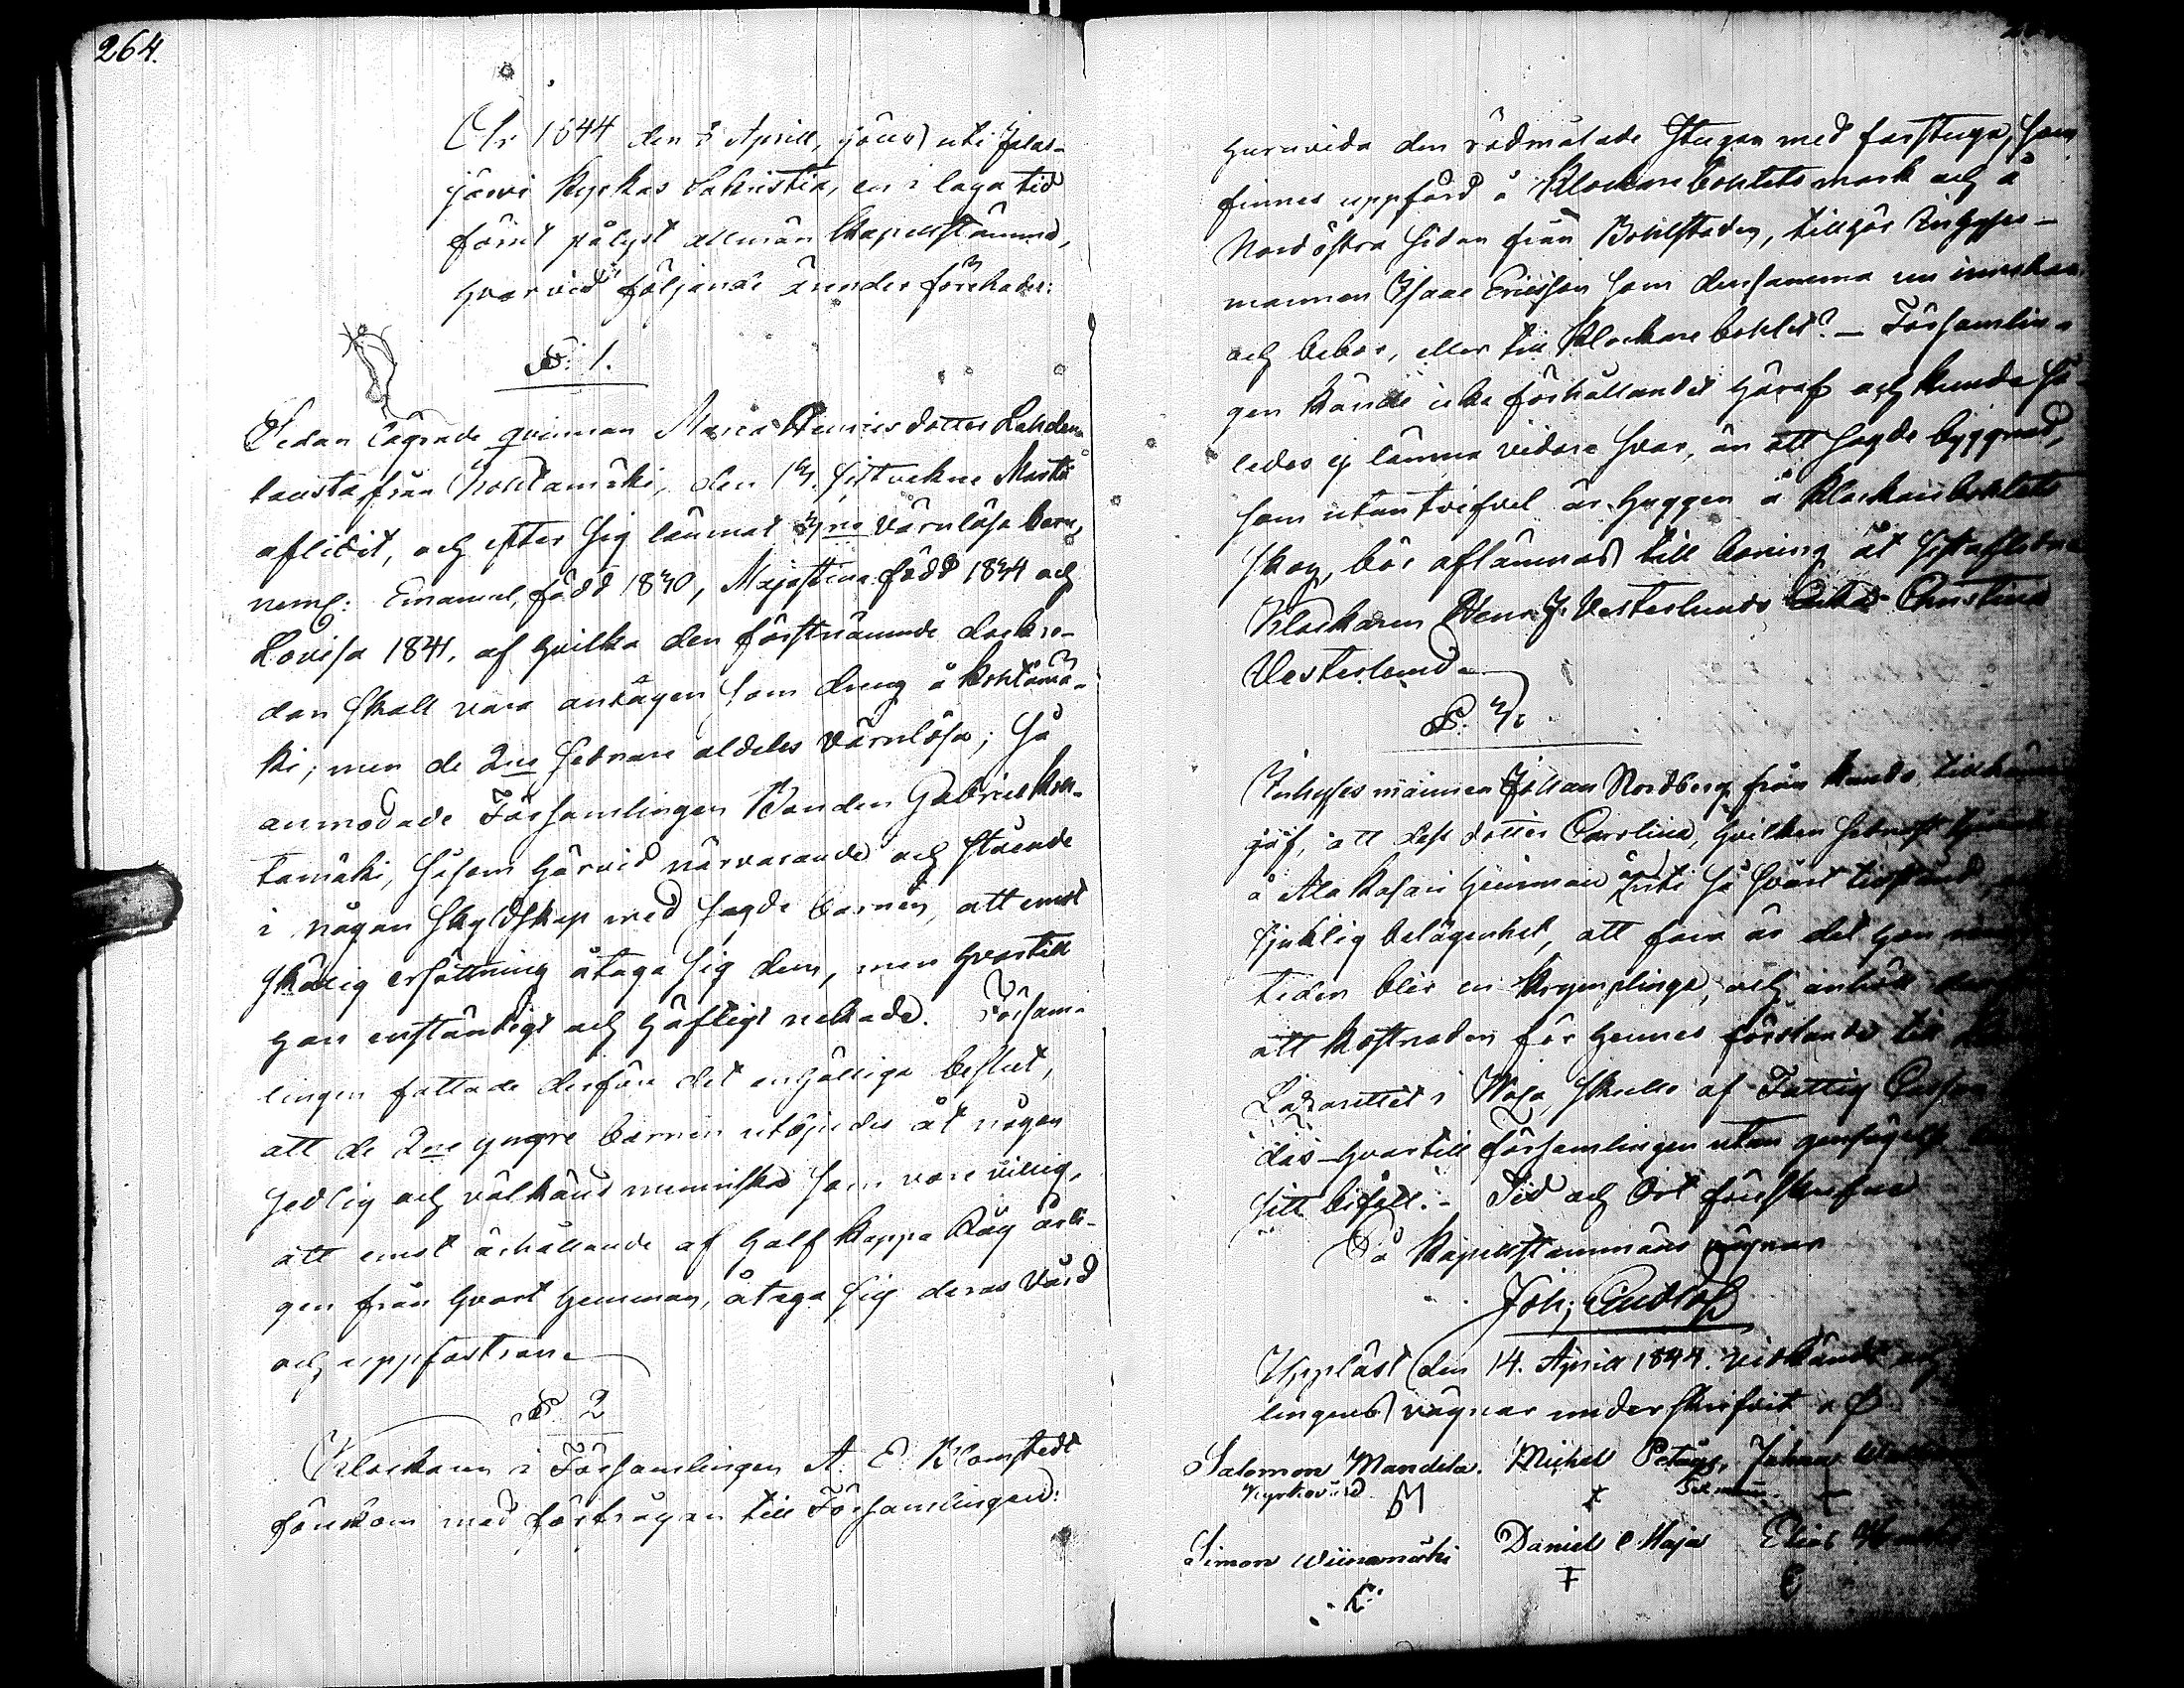 264.
År 1844 den 8 Aprill, hölls uti Jalas-
järvi Kyrkas Sakristia, en i laga tid
förut pålyst allmän Kapellstämma,
hvarvid följande ärender förehades:
§. 1.
Sedan lägrade qvinnan Maria Henricsdotter Lahden-
lausta från Kohtamäki, den 13. sistvekne Martii
aflidit, och efter sig lämnat 3ne värnlösa barn,
neml: Emanuel, född 1830, Majastina född 1834 och
Lovisa 1841. af hvilka den förstnämnde docke re-
dan skall vara antagen som dreng å Kohtamä-
ki; men de 2ne sednare aldeles värnlösa; så
anmodade Församlingen Bonden Gabriel Koh-
tamäki, såsom härvid närvarande och stående
i någon skyldskap med sagde barnen, att emot
skälig ersättning åtaga sig dem, men hvartill
han enständigt och häftigt nekade. Försam-
lingen fattade derföre det enhälliga beslut,
att de 2ne yngre barnen utbjudes åt någon
sedlig och välkänd menniska som vore villig,
att emot erhållande af half kappa Råg årli-
gen från hvart hemman, åtaga sig deras vård
och uppfostran.
§. 2
Klockaren i Församlingen A. E. Blomstedt
förekom med förfrågan till Församlingen:
huruvida den rödmålade stugan med farstuga, som
finnes uppförd å Klockarebohlets mark och å
Nordöstra sidan från Bohlstaden, tillhör Inhyses-
mannen Isaac Ericsson som densamma nu innehar
och bebor, eller till Klockarebohlet? - Församlin-
gen kände icke förhållandet häraf och kunde så-
ledes ej lämna vidare svar, än att sagde byggnad,
som utan tvifvel är huggen å Klockarebohlets
skog, bör aflämnas till boning åt sistaflidne
Klockaren Henr. J. Vesterlunds Enka Christina
Vesterlund.
§. 3
Inhysesmannen Johan Nordberg från Kando tillkänna
gaf, att dess dotter Carolina, hvilken sednast tjent
å Ala Kasari hemman är uti så svårt tillstånd
sjuklig belägenhet, att fara är det hon
tiden blir en Krympling, och anhöll
att kostnaden för hennes förslande till
Lazarettet i Wasa skulle af Fattig Cassan
das - hvartill Församlingen utan gensägelse
sitt bifall. - Tid och Ort föreskrefne
På Kapellstämmans vägnar
Joh; Eneblaf
Uppläst den 14. Aprill 1844. vidkändt och
lingens vägnar underskrifvit af
Salomon Mandela. Michell Petäys, Johan
Kyrkovärd M X Sexman +
Simon Wiinamäki Daniel Maja Elias